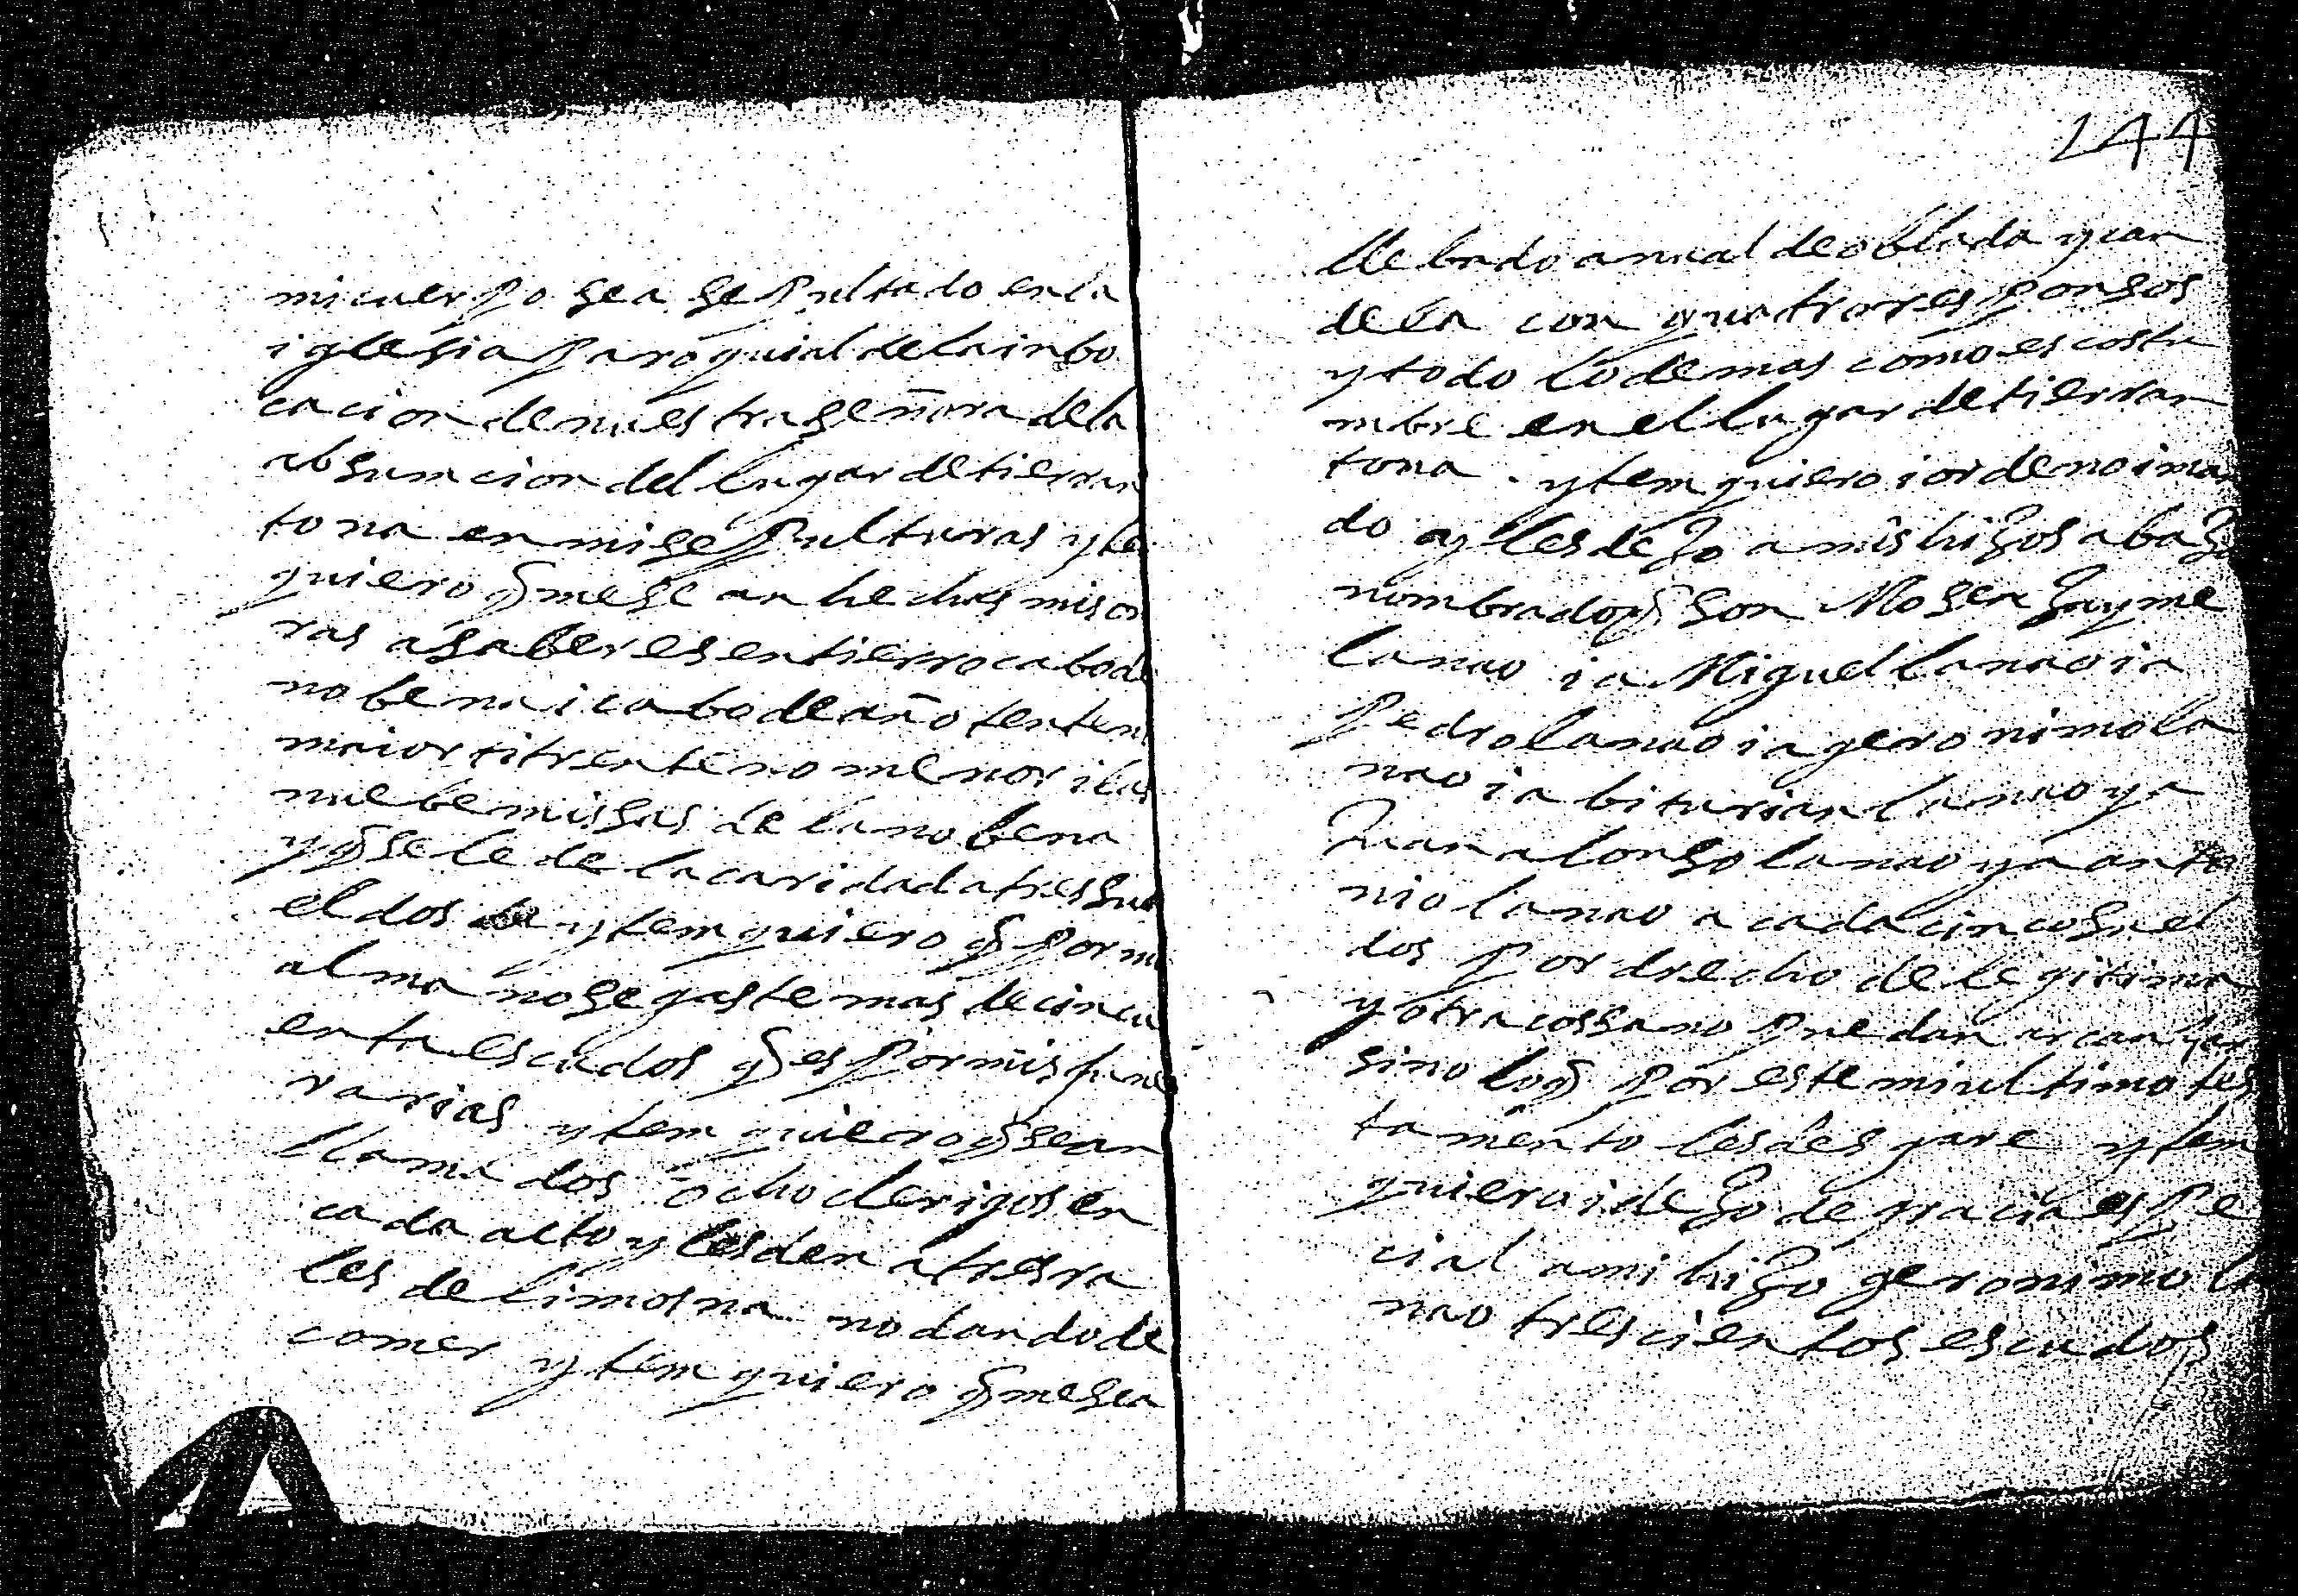 mi cuerpo sea sepultado en la
iglesia paroquial de la inbo
cacion de nuestra señora de la
absumcion del lugar de tierran
tona en mis sepulturas yte
quiero q̃ me sean hechas mis on
ras a saber es entierro cabo de
nobena i cabo de año tenten
maior i trenteno menor i las
nuebe missas de la nobena
y q̃ se le de la caridad a tres suel
el dos de ytem quiero q̃ por mi
alma no se gaste mas de cincu
enta escudos q̃ es por mis fune
rarias ytem quiero q̃ sean
llamados ocho clerigos en
cada acto y les den a tres ra
les de limosna no dando de
comer ytem quiero q̃ me sea
144
llebado anual de oblada y can
dela con quatro responsos
y todo lo demas como es costu
mbre en el lugar de tierran
tona . ytem quiero i ordeno i man
do y les dejo a mis hijos abajo
nombrados q̃ son Mosen Jayme
lanao i a Miguel lanao i a
Pedro lanao i a geronimo la
nao i a biturian lanao y a
Juan alonso lanao y a anto
nio lanao a cada cinco suel
dos por drecho de legitima
y otra cossa no puedan arcançar
sino lo q̃ por este mi ultimo tes
tamento les desyare ytem
quiero i dejo de gracia espe
cial a mi hijo geronimo la
nao trescientos escudos